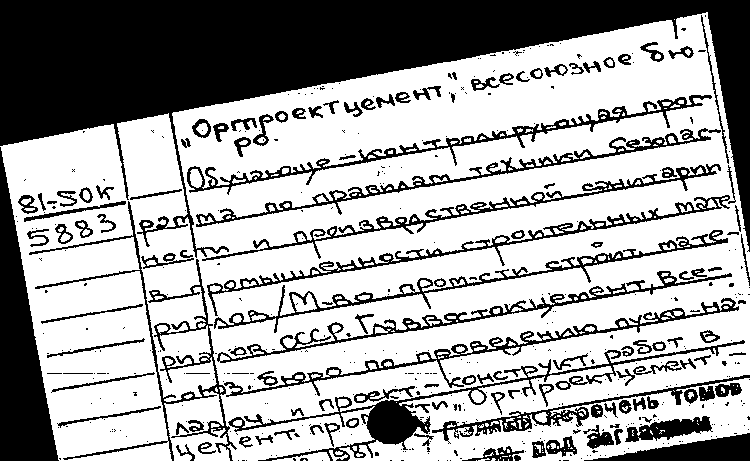 „Оргпроектцемент", всесоюзное бю-
ро.
81-50к
5883
Обучающе-контролирующая прог-
рамма по правилам техники безопас-
ности и производственной санитарии
в промышленности строительных мате-
риалов / М-во пром-сти строит. мате-
риалов СССР. Главвостокцемент, Все-
союз. бюро по проведению пуско-на-
ладоч. и проект.-конструкт. работ в
цемент. пром-сти „Оргпроектцемент". -
1981.
перечень томов
см. под заглавием